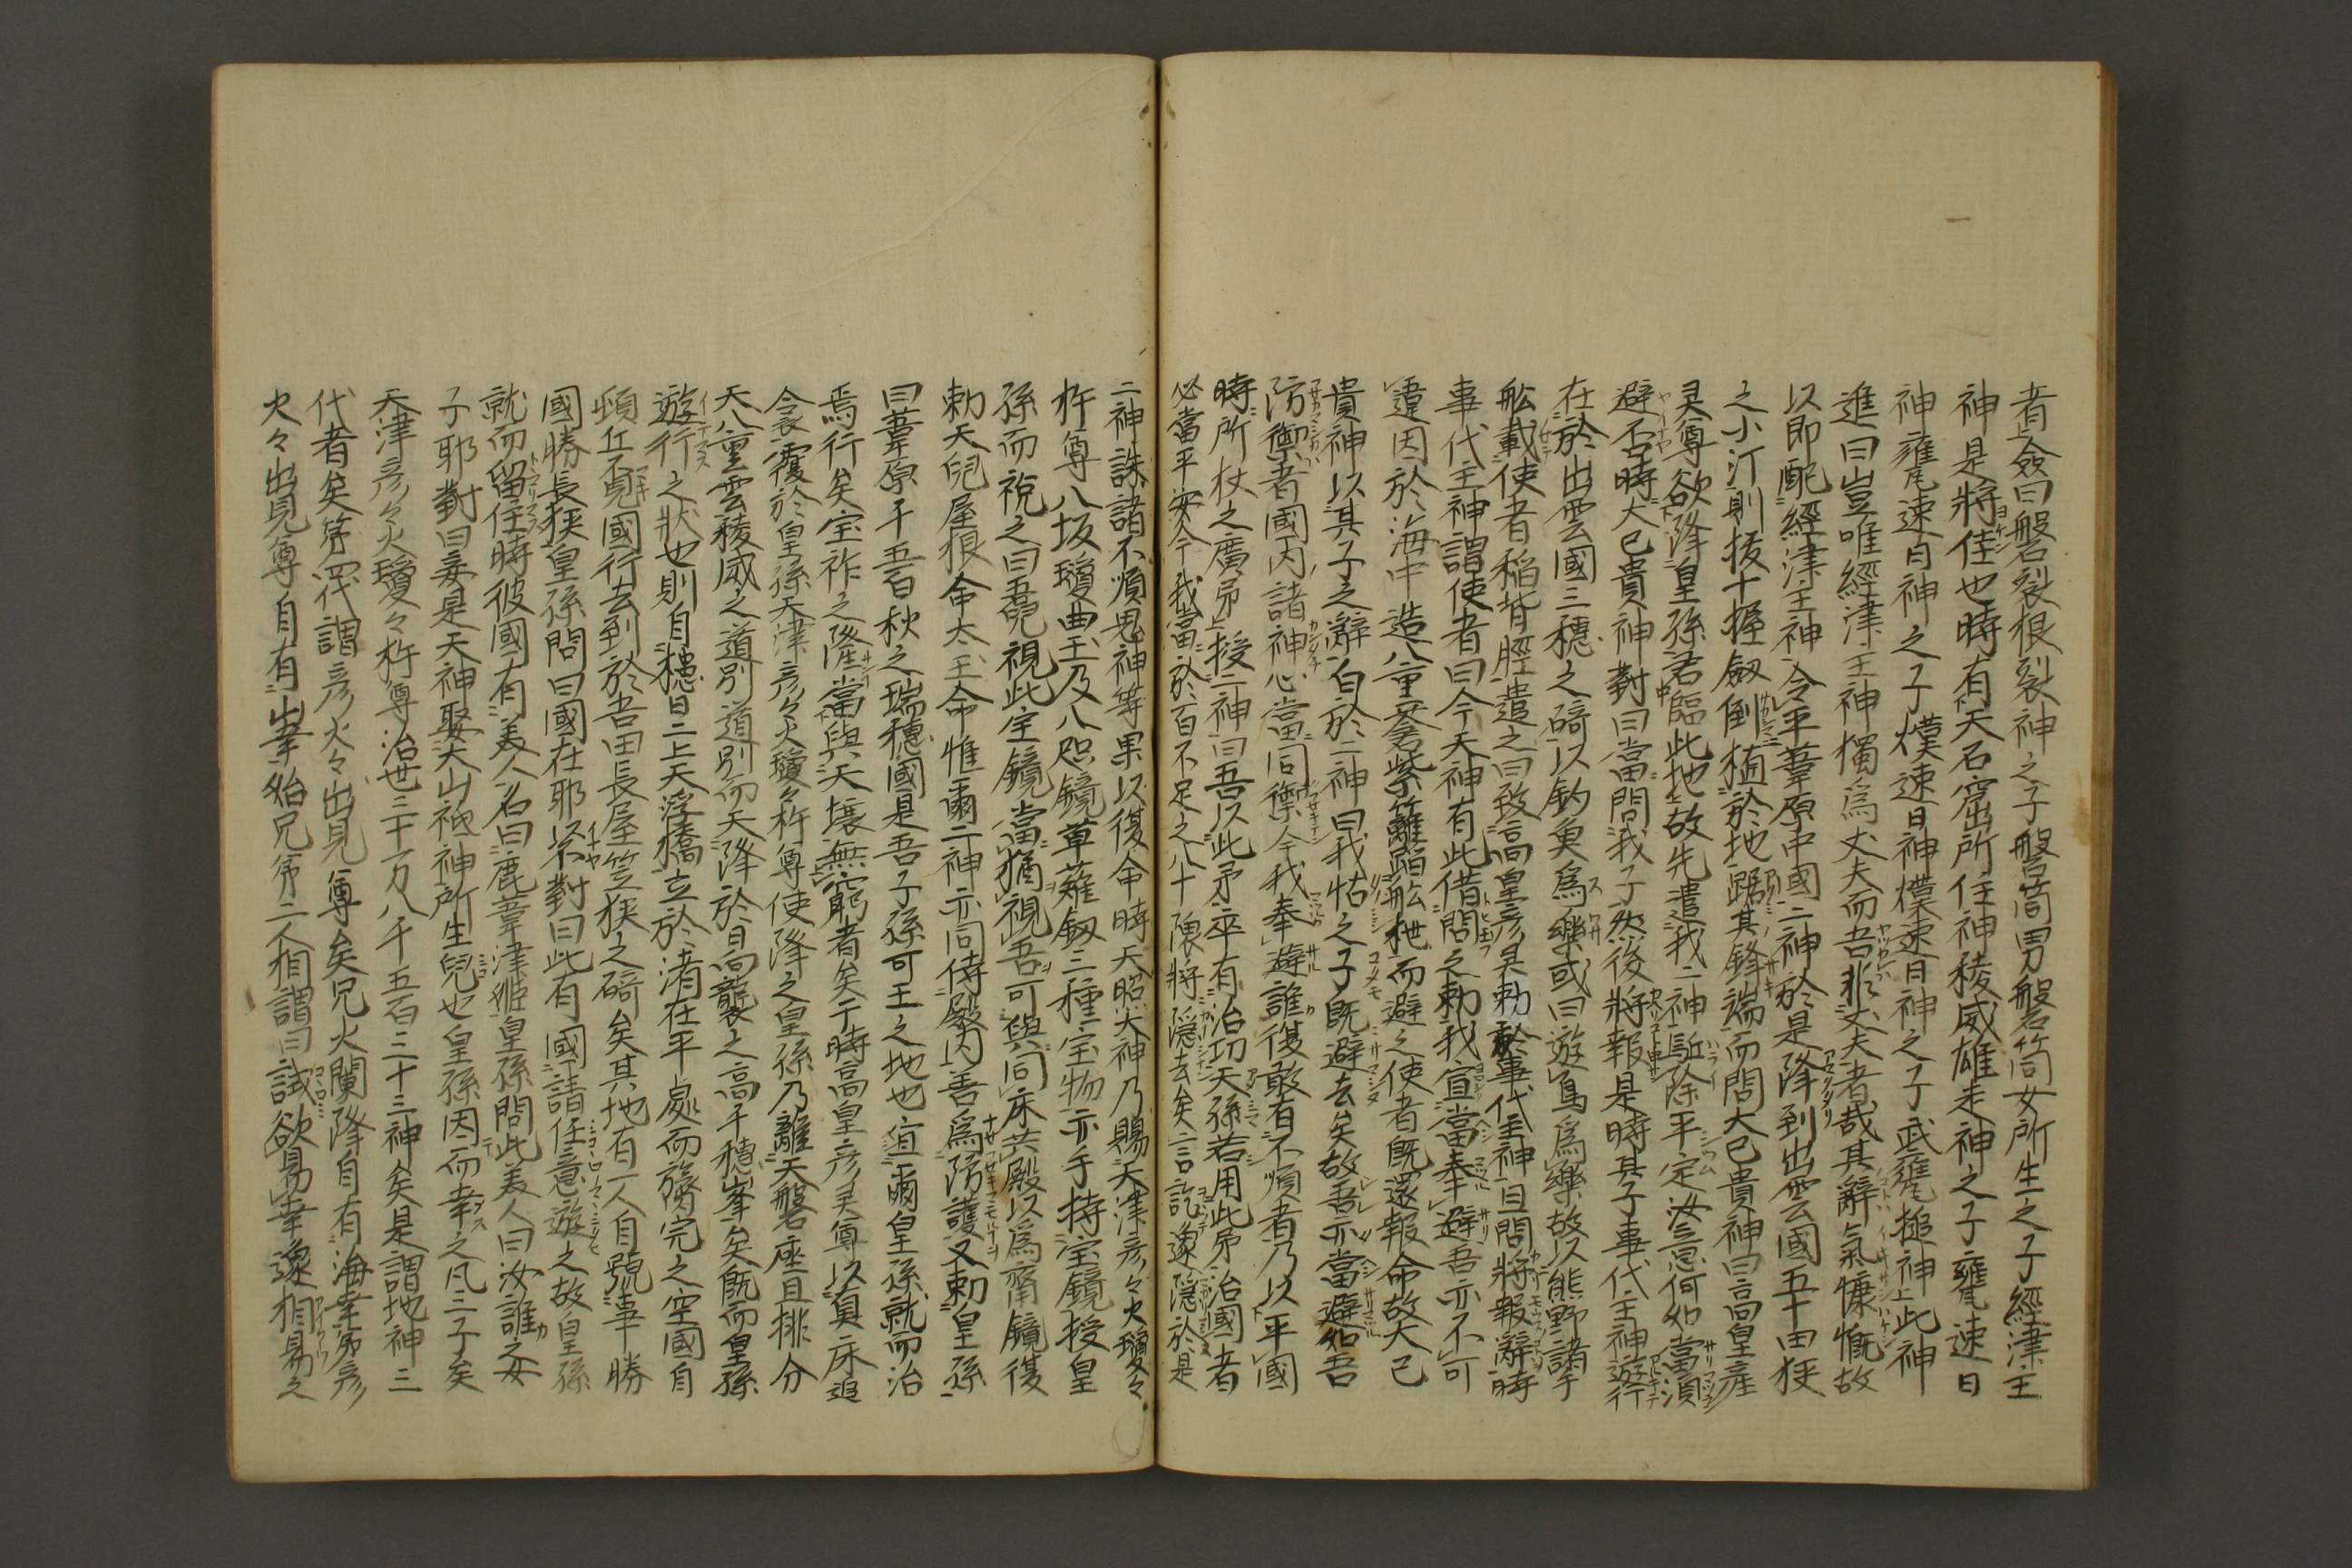 者僉曰磐裂根裂神之子磐筒男磐筒女所生之子經津主
神是將佳也時有天石窟所住神稜威雄走神之子甕速日
神甕速日神之子熯速日神熯速日神之子武甕槌神此神
進曰豈唯經津主神獨為丈夫而吾非丈夫者哉其辭氣慷慨故
以即配經津主神令平葦原中國二神於是降到出雲國五十田狹
之小汀則拔十握劔倒植於地踞其鋒端而問大己貴神曰高皇産
灵尊欲降皇孫君臨此地故先遣我二神駈除平定汝意何如當須
避不時大己貴神對曰當問我子然後將報是時其子事代主神遊行
在於出雲國三穗之碕以釣魚為樂或曰遊鳥為樂故以熊野諸手
舩載使者稻背脛遣之曰致高皇彦灵勅於事代主神且問將報辭時
事代主神謂使者曰今天神有此借問之勅我宜當奉避吾亦不可
違因於海中造八重蒼柴籬蹈舩枻而避之使者既還報命故大己
貴神以其子之辭白於二神曰我怙之子既避去矣故吾亦當避如吾
防禦者國内諸神必當同禦今我奉避誰復敢有不順者乃以平國
時所杖之廣矛授二神曰吾以此矛卒有治功天孫若用此矛治國者
必當平安今我當於百不足之八十隈將隱去矣言訖遂隱於是
二神誅諸不順鬼神等果以復命時天照大神乃賜天津彦々火瓊々
杵尊八坂瓊曲玉及八咫鏡草薙劔三種宝物亦手持宝鏡授皇
孫而祝之曰吾兒視此宝鏡當猶視吾可與同床共殿以為齋鏡復
勅天兒屋根命太玉命惟爾二神亦同侍殿内善為防護又勅皇孫
曰葦原千五百秋之瑞穗國是吾子孫可王之地也宜爾皇孫就而治
焉行矣宝祚之隆當與天壤無窮者矣于時高皇彦灵尊以真床追
衾覆於皇孫天津彦々火瓊々杵尊使降之皇孫乃離天磐座且排分
天八重雲稜威之道別道別而天降於日向襲之高千穗峯矣既而皇孫
遊行之狀也則自槵日二上天浮橋立於渚在平處而膂宍之空國自
頓丘覓國行去到於吾田長屋笠狹之碕矣其地有一人自號事勝
國勝長狹皇孫問曰國在耶以不對曰此有國請任意遊之故皇孫
就而留住時彼國有美人名曰鹿葦津姫皇孫問此美人曰汝誰之女
子耶對曰妾是天神娶大山祗神所生兒也皇孫因而幸之凡三子矣
天津彦々火瓊々杵尊治世三十一万八千五百三十三神矣是謂地神三
代者矣第四代謂彦火々出見尊矣兄火闌降自有海幸弟彦
火々出見尊自有山幸始兄弟二人相謂曰試欲易幸遂相易之